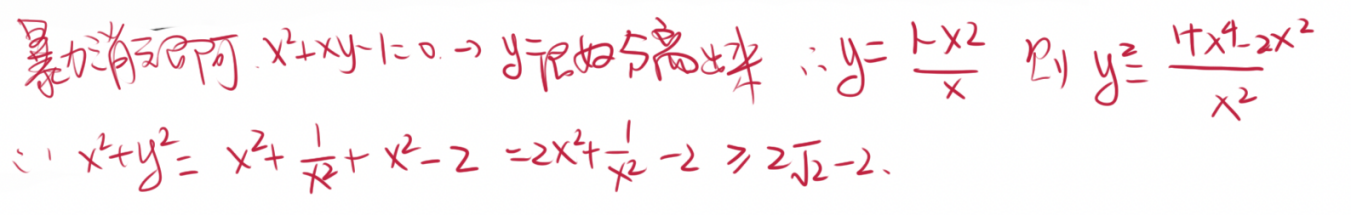 暴力消元即可 x²+xy-1=0 → y很好分离出来 ∴ y= (1-x²)/x 则 y²= (1+x⁴-2x²)/x²
∴ x²+y²= x²+ 1/x² + x²-2 =2x²+ 1/x² -2 ≥ 2√2-2.